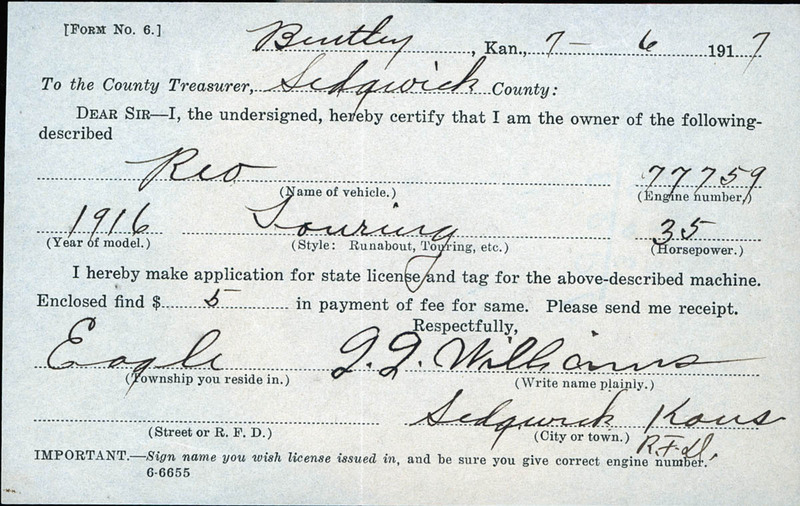 [FORM NO. 6.]
Bentley, Kan., 7 - 6 1917
To the County Treasurer, Sedgwick County:
DEAR SIR—I, the undersigned, hereby certify that I am the owner of the following-
described
Reo 77759
(Name of vehicle.) (Engine number.)
1916 Touring 35
(Year of model.) (Style: Runabout, Touring, etc.) (Horsepower.)
I hereby make application for state license and tag for the above-described machine.
Enclosed find $ 5 in payment of fee for same. Please send me receipt.
Respectfully,
Eagle Williams
(Township you reside in.) (Write name plainly.)
Sedgwick Kans
(Street or R. F. D.) (City or town.) R.F.d.
IMPORTANT.—Sign name you wish license issued in, and be sure you give correct engine number.
6-6655